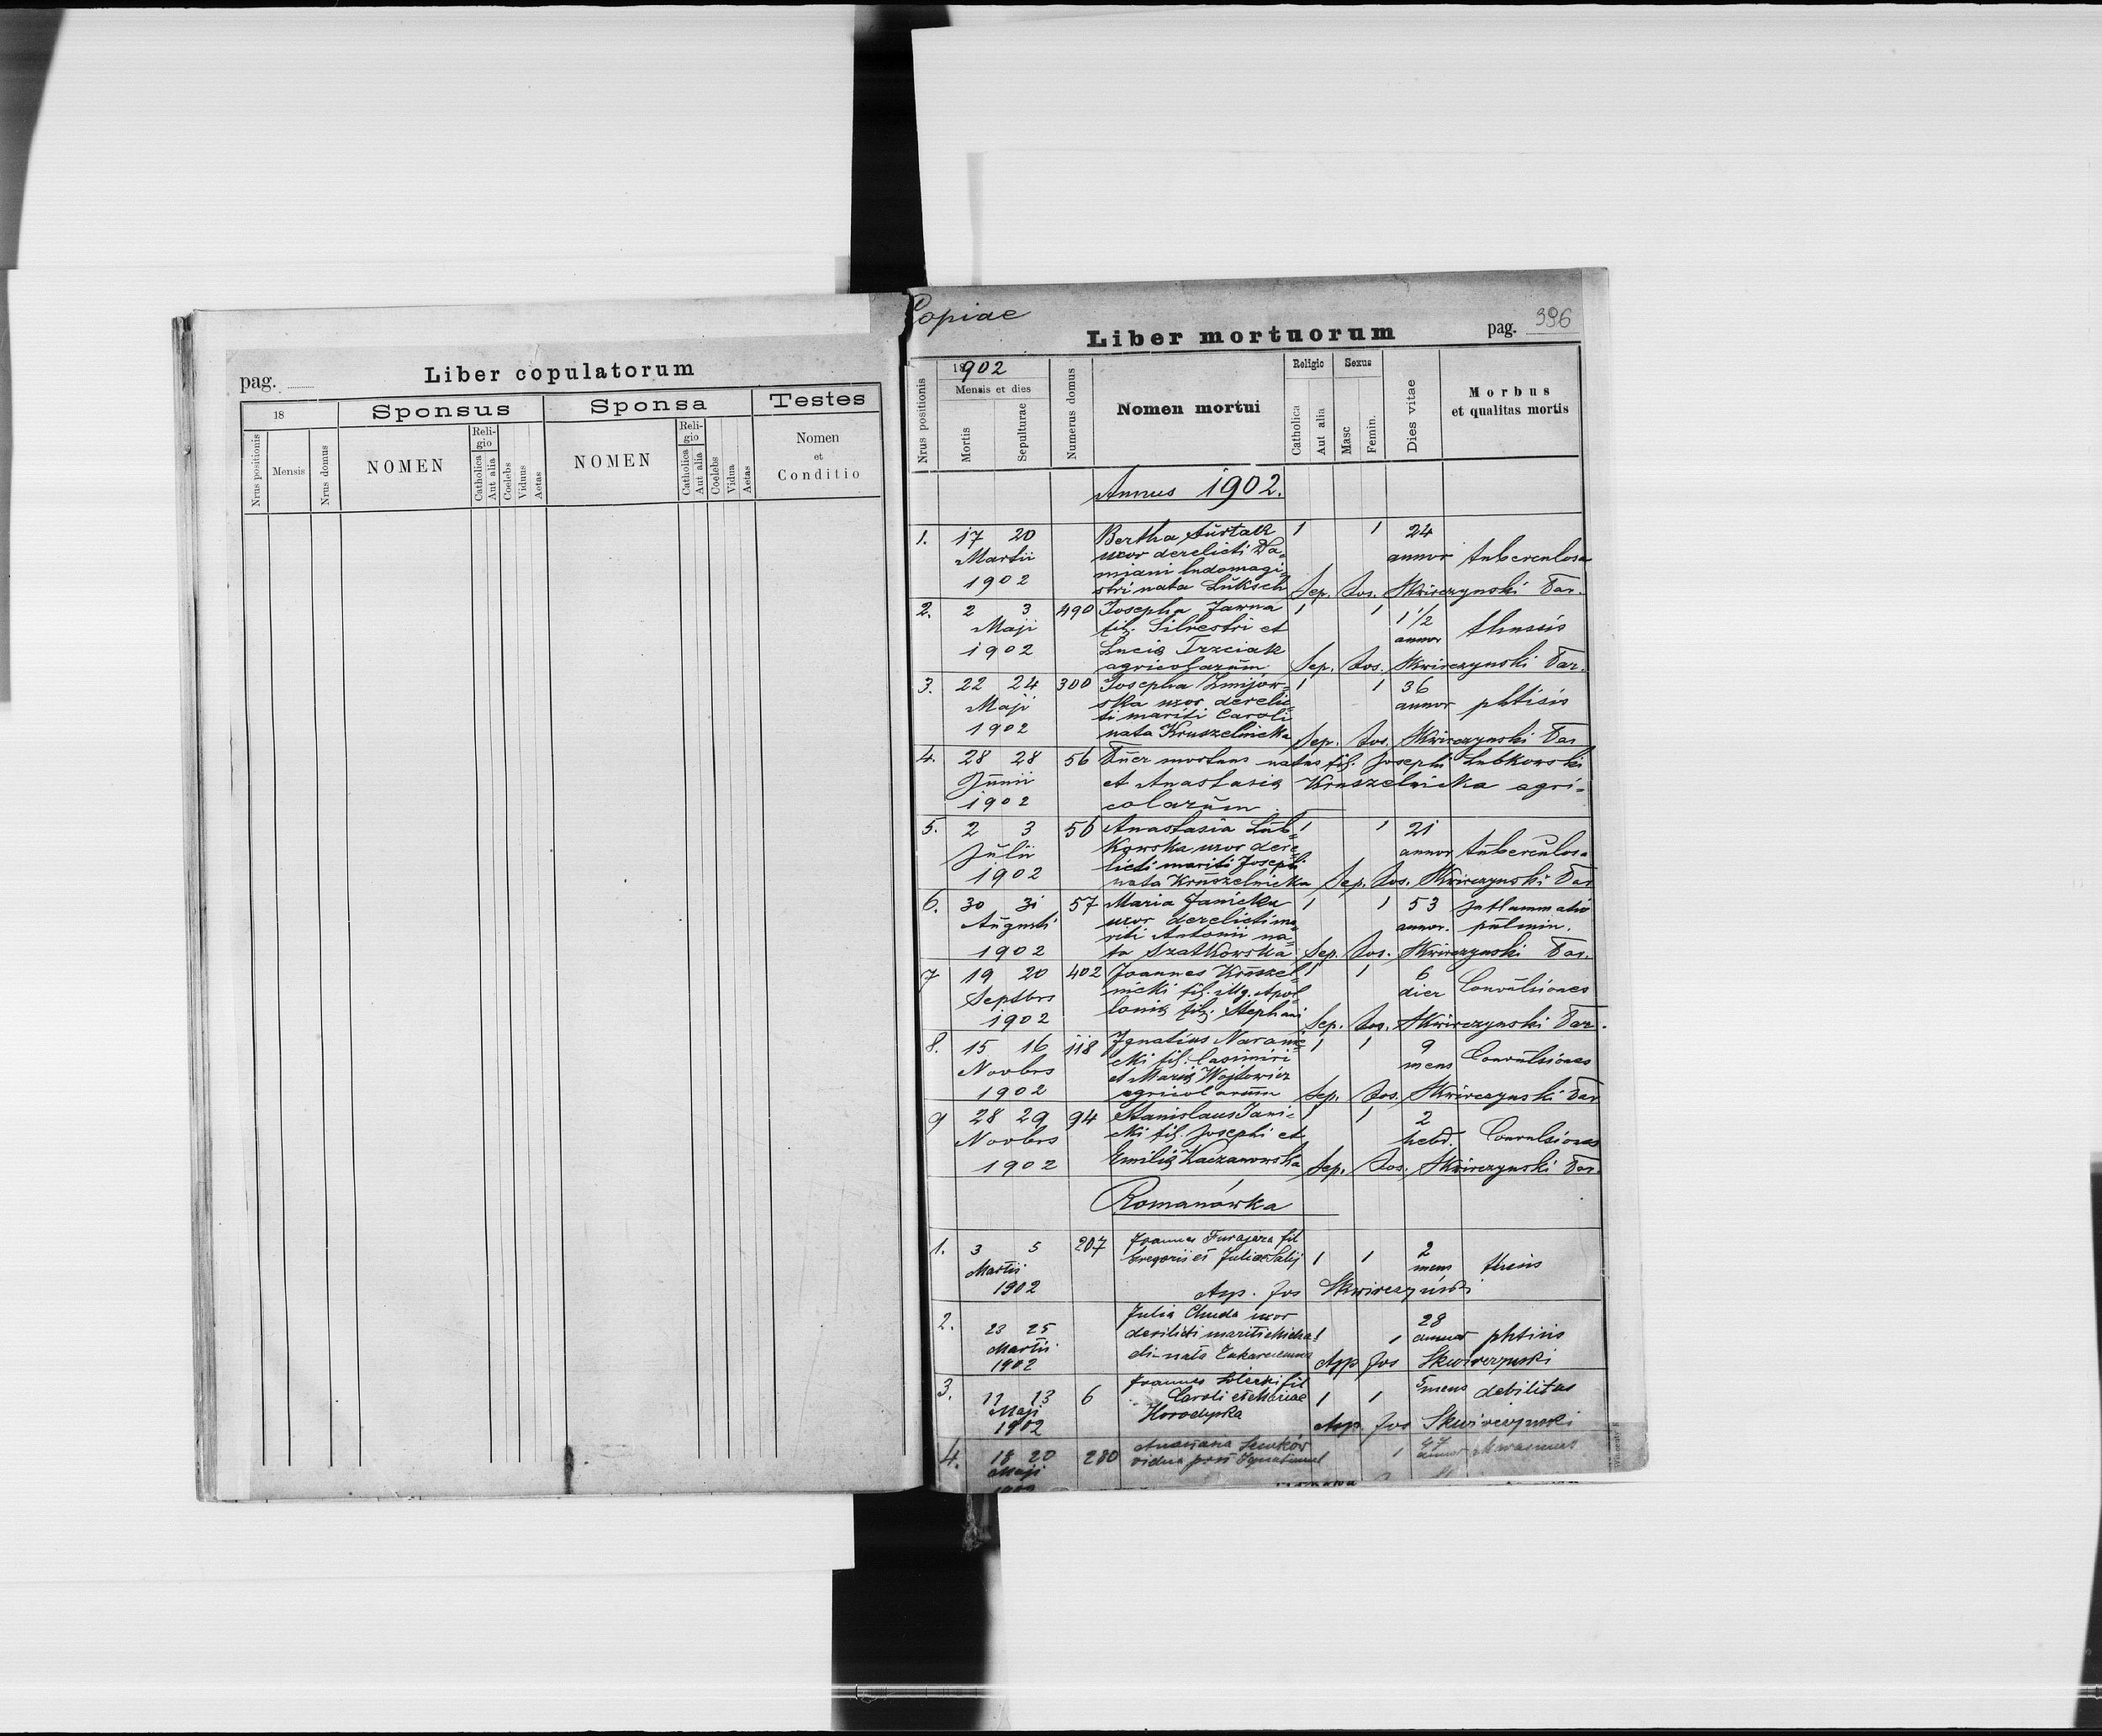 pag.
Liber copulatorum
18
Sponsus
Sponsa
Testes
Nrus positionis
Mensis
Nrus domus
NOMEN
Reli-
gio
Catholica
Aut alia
Coelebs
Viduus
Aetas
NOMEN
Reli-
gio
Catholica
Aut alia
Coelebs
Vidua
Aetas
Nomen
et
Conditio
Copiae
Liber mortuorum
pag. 396
Nrus positionis
18902
Mensis et dies
Mortis
Sepulturae
Numerus domus
Nomen mortui
Religio
Catholica
Aut alia
Sexus
Masc
Femin.
Dies vitae
Morbus
et qualitas mortis
Annus 1902.
1. 17 20 Bertha 1 1 24
Martii uxor derelicti Da=
annor tuberculosa
miani ludomagi=
1902 stri nata Luksch Sep. Jos. Skwirczynski Par.
2. 2 3 490 Josepha Jawna 1 1 1 1/2
Maji fil. Silvestri et annor thussis
1902 Lucia Trzciak
agricolarum Sep. Jos. Skwirczynski Par.
3. 22 24 300 Josepha Zmijow= 1 1 36
Maji ska uxor derelic= annor phtisis
ti mariti Caroli
1902 nata Kruszelnicka Sep. Jos. Skwirczynski Par
4. 28 28 56 Puer mortuus natus fil. Josephi Lubkowski
Junii et Anastasia Kruszelnicka agri=
1902 colarum
5. 2 3 56 Anastasia Lub= 1 1 21
Julii kowska uxor dere= annor tuberculosa
licti mariti Josephi
1902 nata Kruszelnicka Sep. Jos. Skwirczynski Par
6. 30 31 57 Maria Janicka 1 1 53 Inflammatio
Augusti uxor derelicti ma= annor. pulmin.
riti Antonii na=
1902 ta Szatkowska Sep. Jos. Skwirczynski Par.
7 19 20 402 Joannes Kruszel= 1 1 6
Septbrs nicki fil. Apol= dier Convulsiones
lonia fil. Stephani
1902 Sep. Jos. Skwirczynski Par.
8. 15 16 118 Ignatius 1 1 9
Novbrs cki fil. Casimiri mens Convulsiones
et Maria Wojtowicz
1902 agricolarum Sep. Jos. Skwirczynski Par
9 28 29 94 Stanislaus Jani= 1 1 2
Novbrs cki fil. Josephi et hebd. Convulsiones
1902 Emilia Kaczanowska Sep. Jos. Skwirczynski Par.
Romanówka
1. 3 5 207 Joannes fil
Gregorii et Juliae 1 1 2
Martii mens
1902 Jos Skwirczyński
2. Julia Chuda uxor 28
23 25 derilicti mariti 1 1 annor phtisis
Martii di nata
1902 App Jos Skwirczynski
3. Joannes fil 5 mens debilitas
11 13 6 Caroli et Mariae 1 1
Maji Horodyska
1902 Jos Skwirczynski
4. 18 20 280 Anastasia 1 annor
Maji vidua post Ignatium
1902